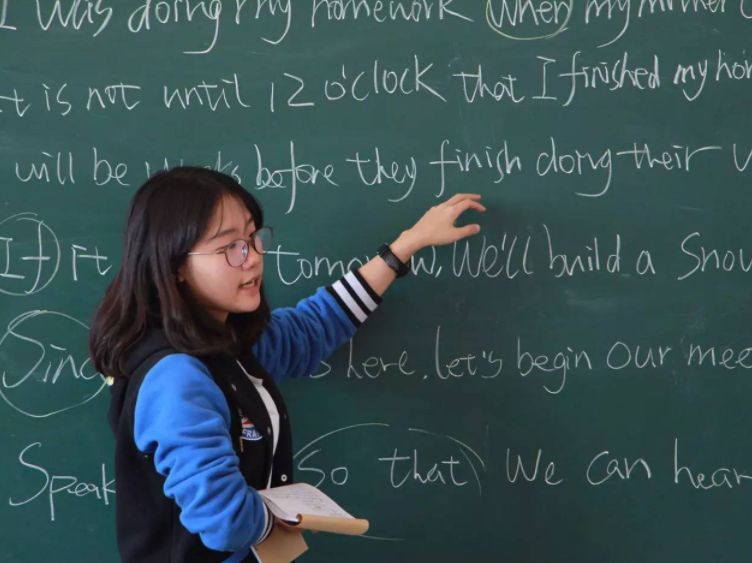 I was doing my homework when my mother
t is not until 12 o'clock that I finished my ho
will be before they finish doing their w
If it tomorrow, we'll build a Snow
Sinc s here, let's begin our mee
Speak So that we can hear